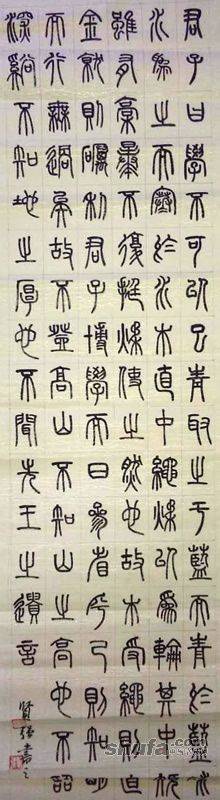 君子曰學不可以已青取之于藍而青於藍冰
水為之而寒於水木直中繩煣以為輪其中規
雖有槁暴不復挺煣使之然也故木受繩則直
金就則礪利君子博學而日參省乎己則知明
而行無過矣故不登高山不知山之高也不臨
深谿不知地之厚也不聞先王之遺言
書
shufa.com